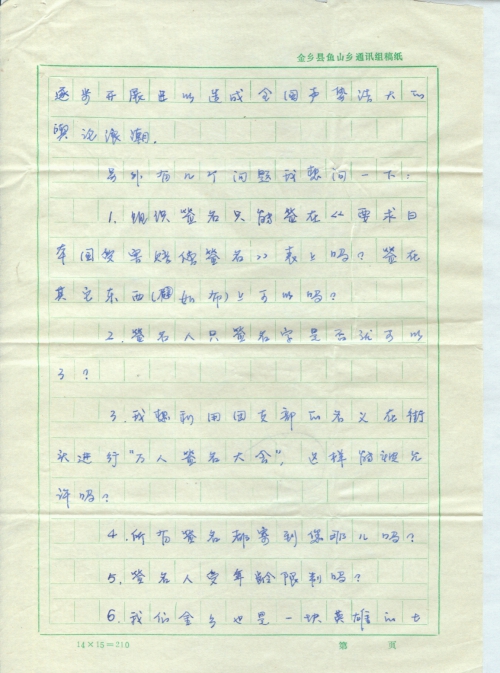 金乡县鱼山乡通讯组稿纸
逐步开展且以造成全国声势浩大的
舆论浪潮。
另外有几个问题我想问一下：
1.组织签名只能签在《要求日
本国受害赔偿签名》表上吗？签在
其它东西(如布)上可以吗？
2.签名人只签名字是否就可以
了？
3.我想利用团支部的名义在街
头进行"万人签名大会"，这样能被允
许吗？
4.所有签名都寄到您那儿吗？
5.签名人受年龄限制吗？
6.我们金乡也是一块英雄的土
14×15=210
第 页